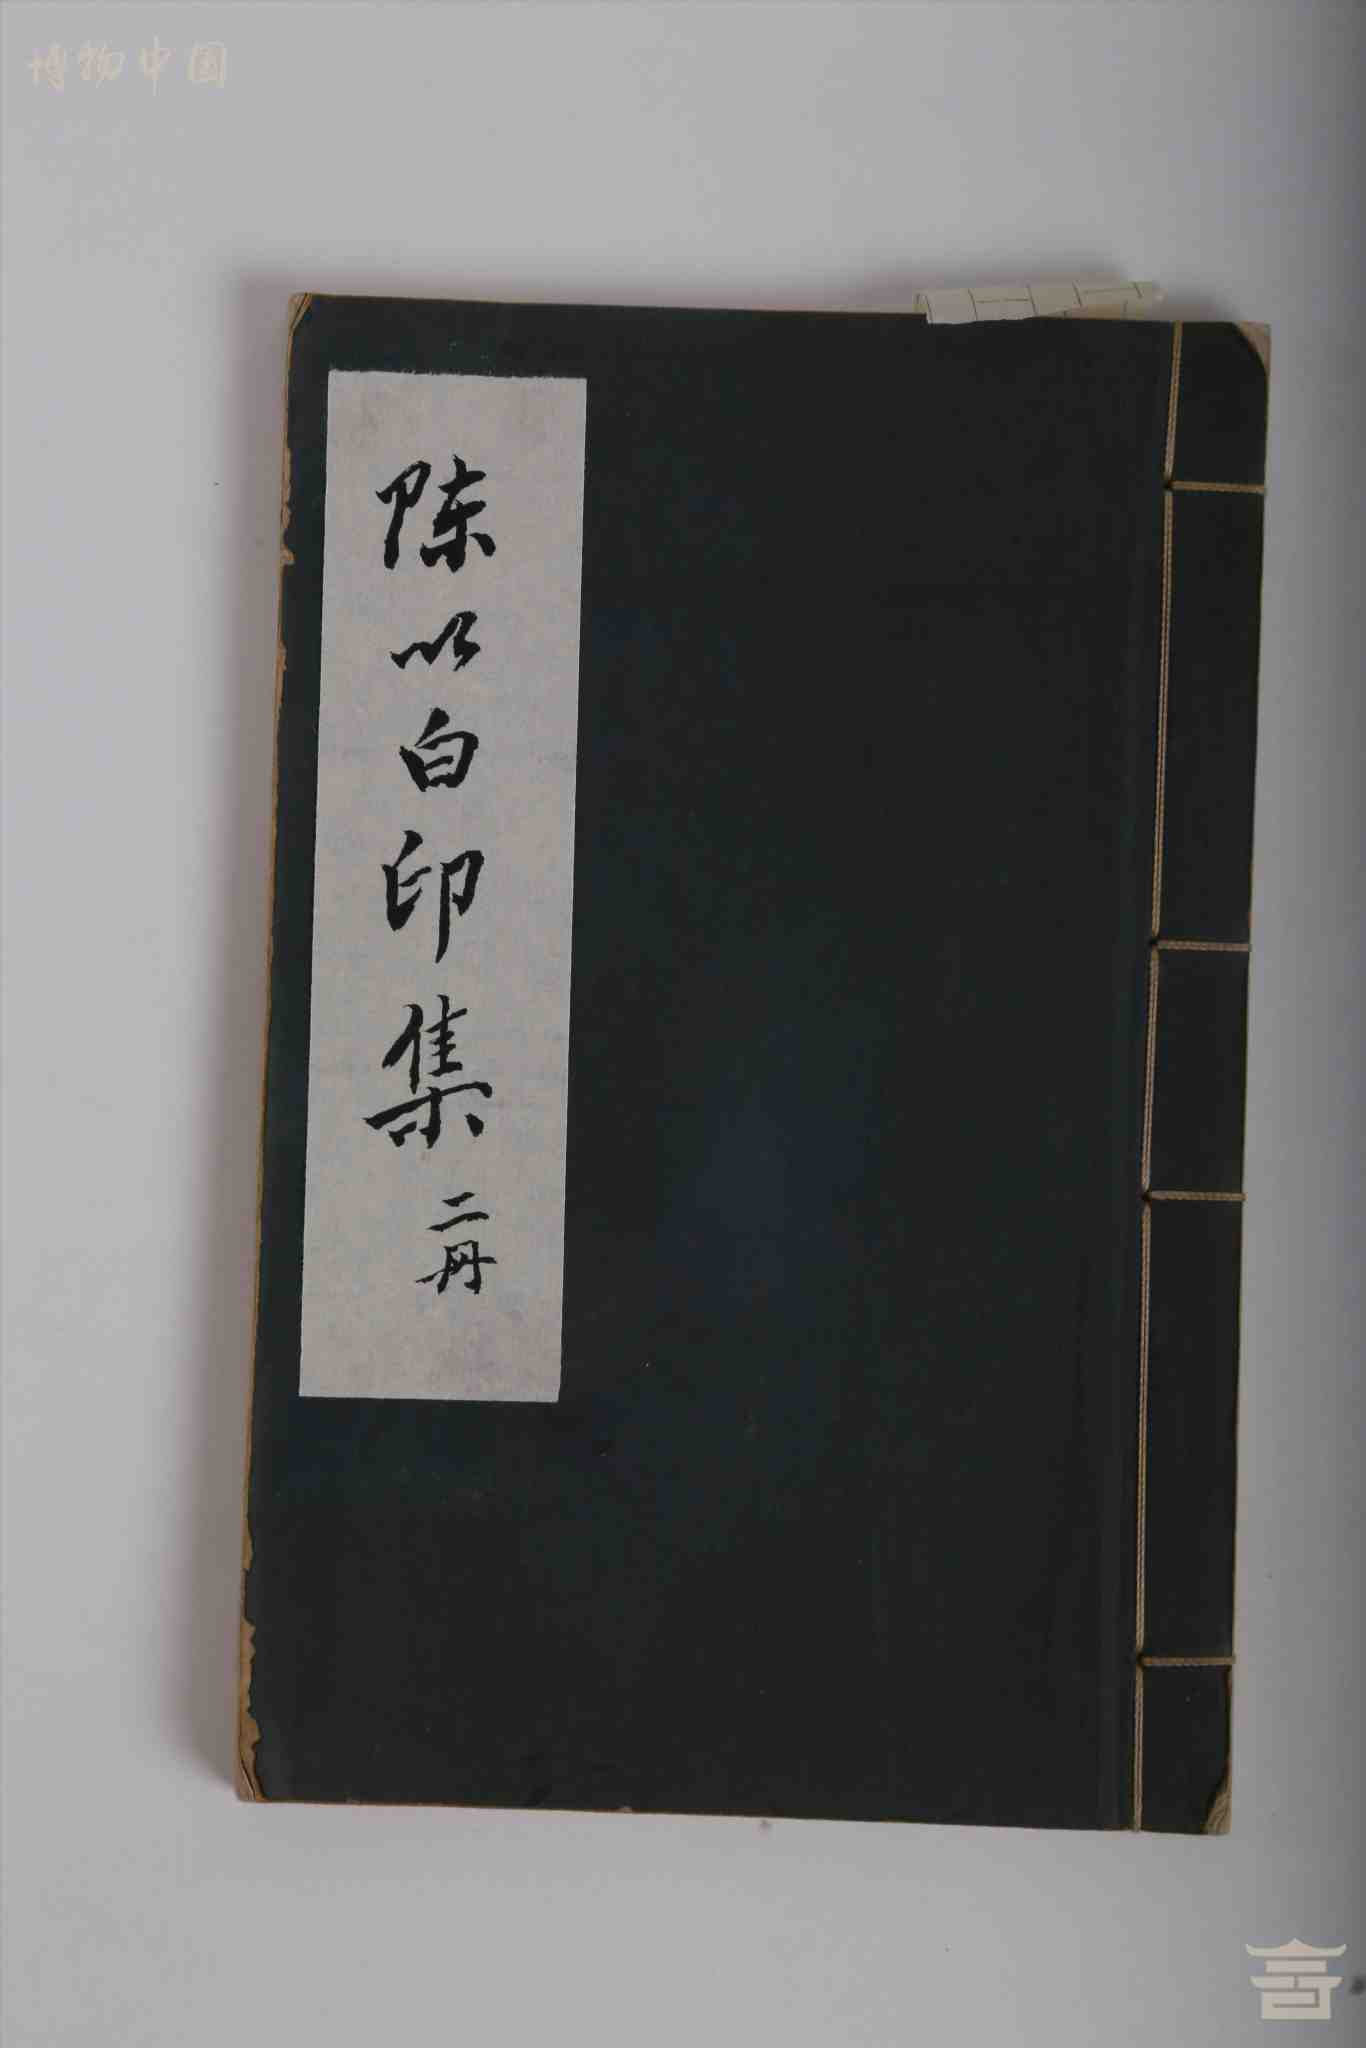 博物中国
陈以白印集
二册